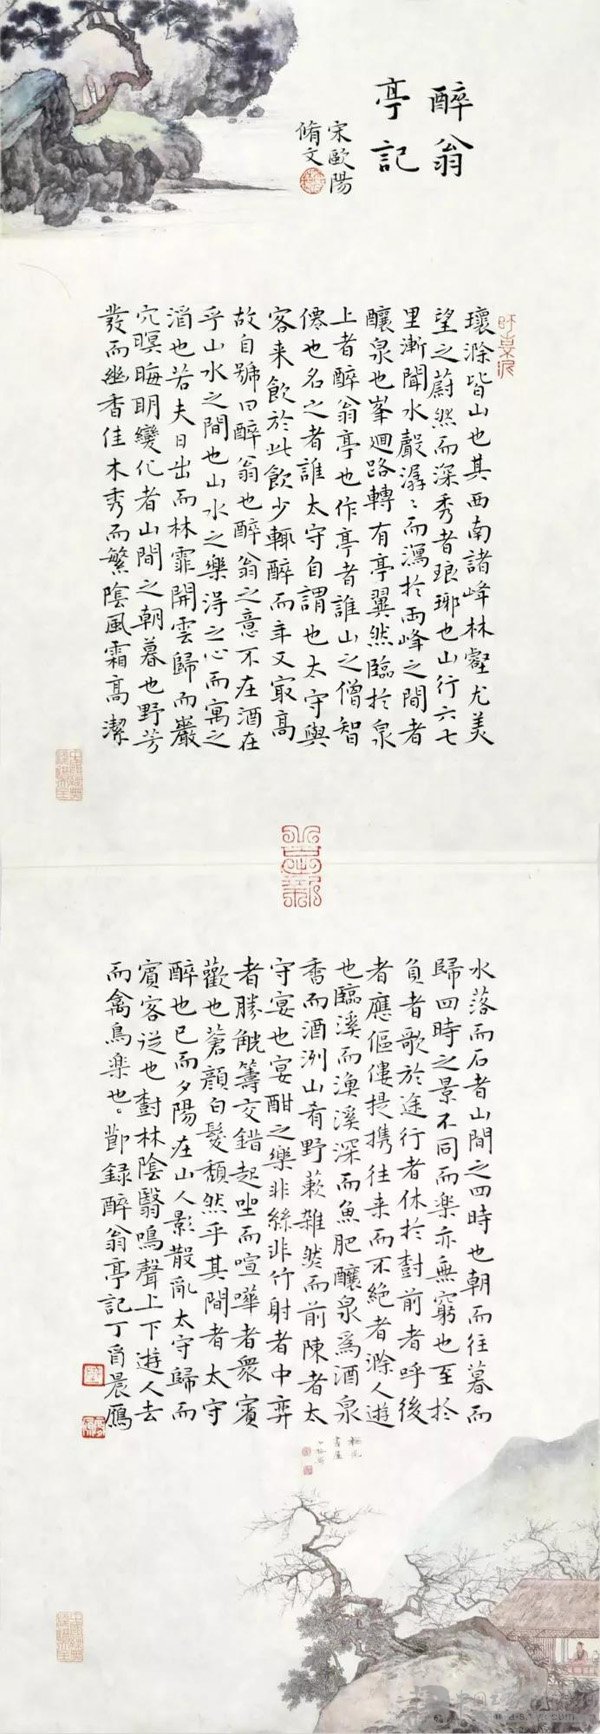 醉翁
亭記
宋歐陽
脩文
環滁皆山也其西南諸峰林壑尤美
望之蔚然而深秀者琅琊也山行六七
里漸聞水聲潺〻而瀉於兩峰之間者
釀泉也峯迴路轉有亭翼然臨於泉
上者醉翁亭也作亭者誰山之僧智
僊也名之者誰太守自謂也太守與
客来飲於此飲少輒醉而年又冣高
故自號曰醉翁也醉翁之意不在酒在
乎山水之間也山水之樂淂之心而寓之
酒也若夫日出而林霏開雲歸而巖
穴暝晦明變化者山間之朝暮也野芳
發而幽香佳木秀而繁陰風霜高潔
水落而石者山間之四時也朝而往暮而
歸四時之景不同而樂亦無窮也至於
負者歌於途行者休於樹前者呼後
者應傴僂提攜往来而不絕者滁人遊
也臨溪而漁溪深而魚肥釀泉爲酒泉
香而酒洌山肴野蔌雜然而前陳者太
守宴也宴酣之樂非絲非竹射者中弈
者勝觥籌交錯起坐而喧嘩者衆賓
歡也蒼顏白髮頹然乎其間者太守
醉也已而夕陽在山人影散亂太守歸而
賓客從也樹林陰翳鳴聲上下遊人去
而禽鳥樂也。節錄醉翁亭記丁酉晨鴈